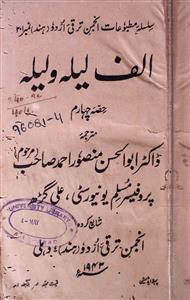 سلسلۂ مطبوعات انجمن ترقی اردو (ہند) نمبر
الف لیلہ و لیلہ
حصہ چہارم
96081-4
مترجمہ
ڈاکٹر ابوالحسن منصور احمد صاحب (مرحوم)
پروفیسر مسلم یونیورسٹی، علی گڑھ
شایع کردہ
انجمن ترقی اردو (ہند)، دہلی
۱۹۴۳ء